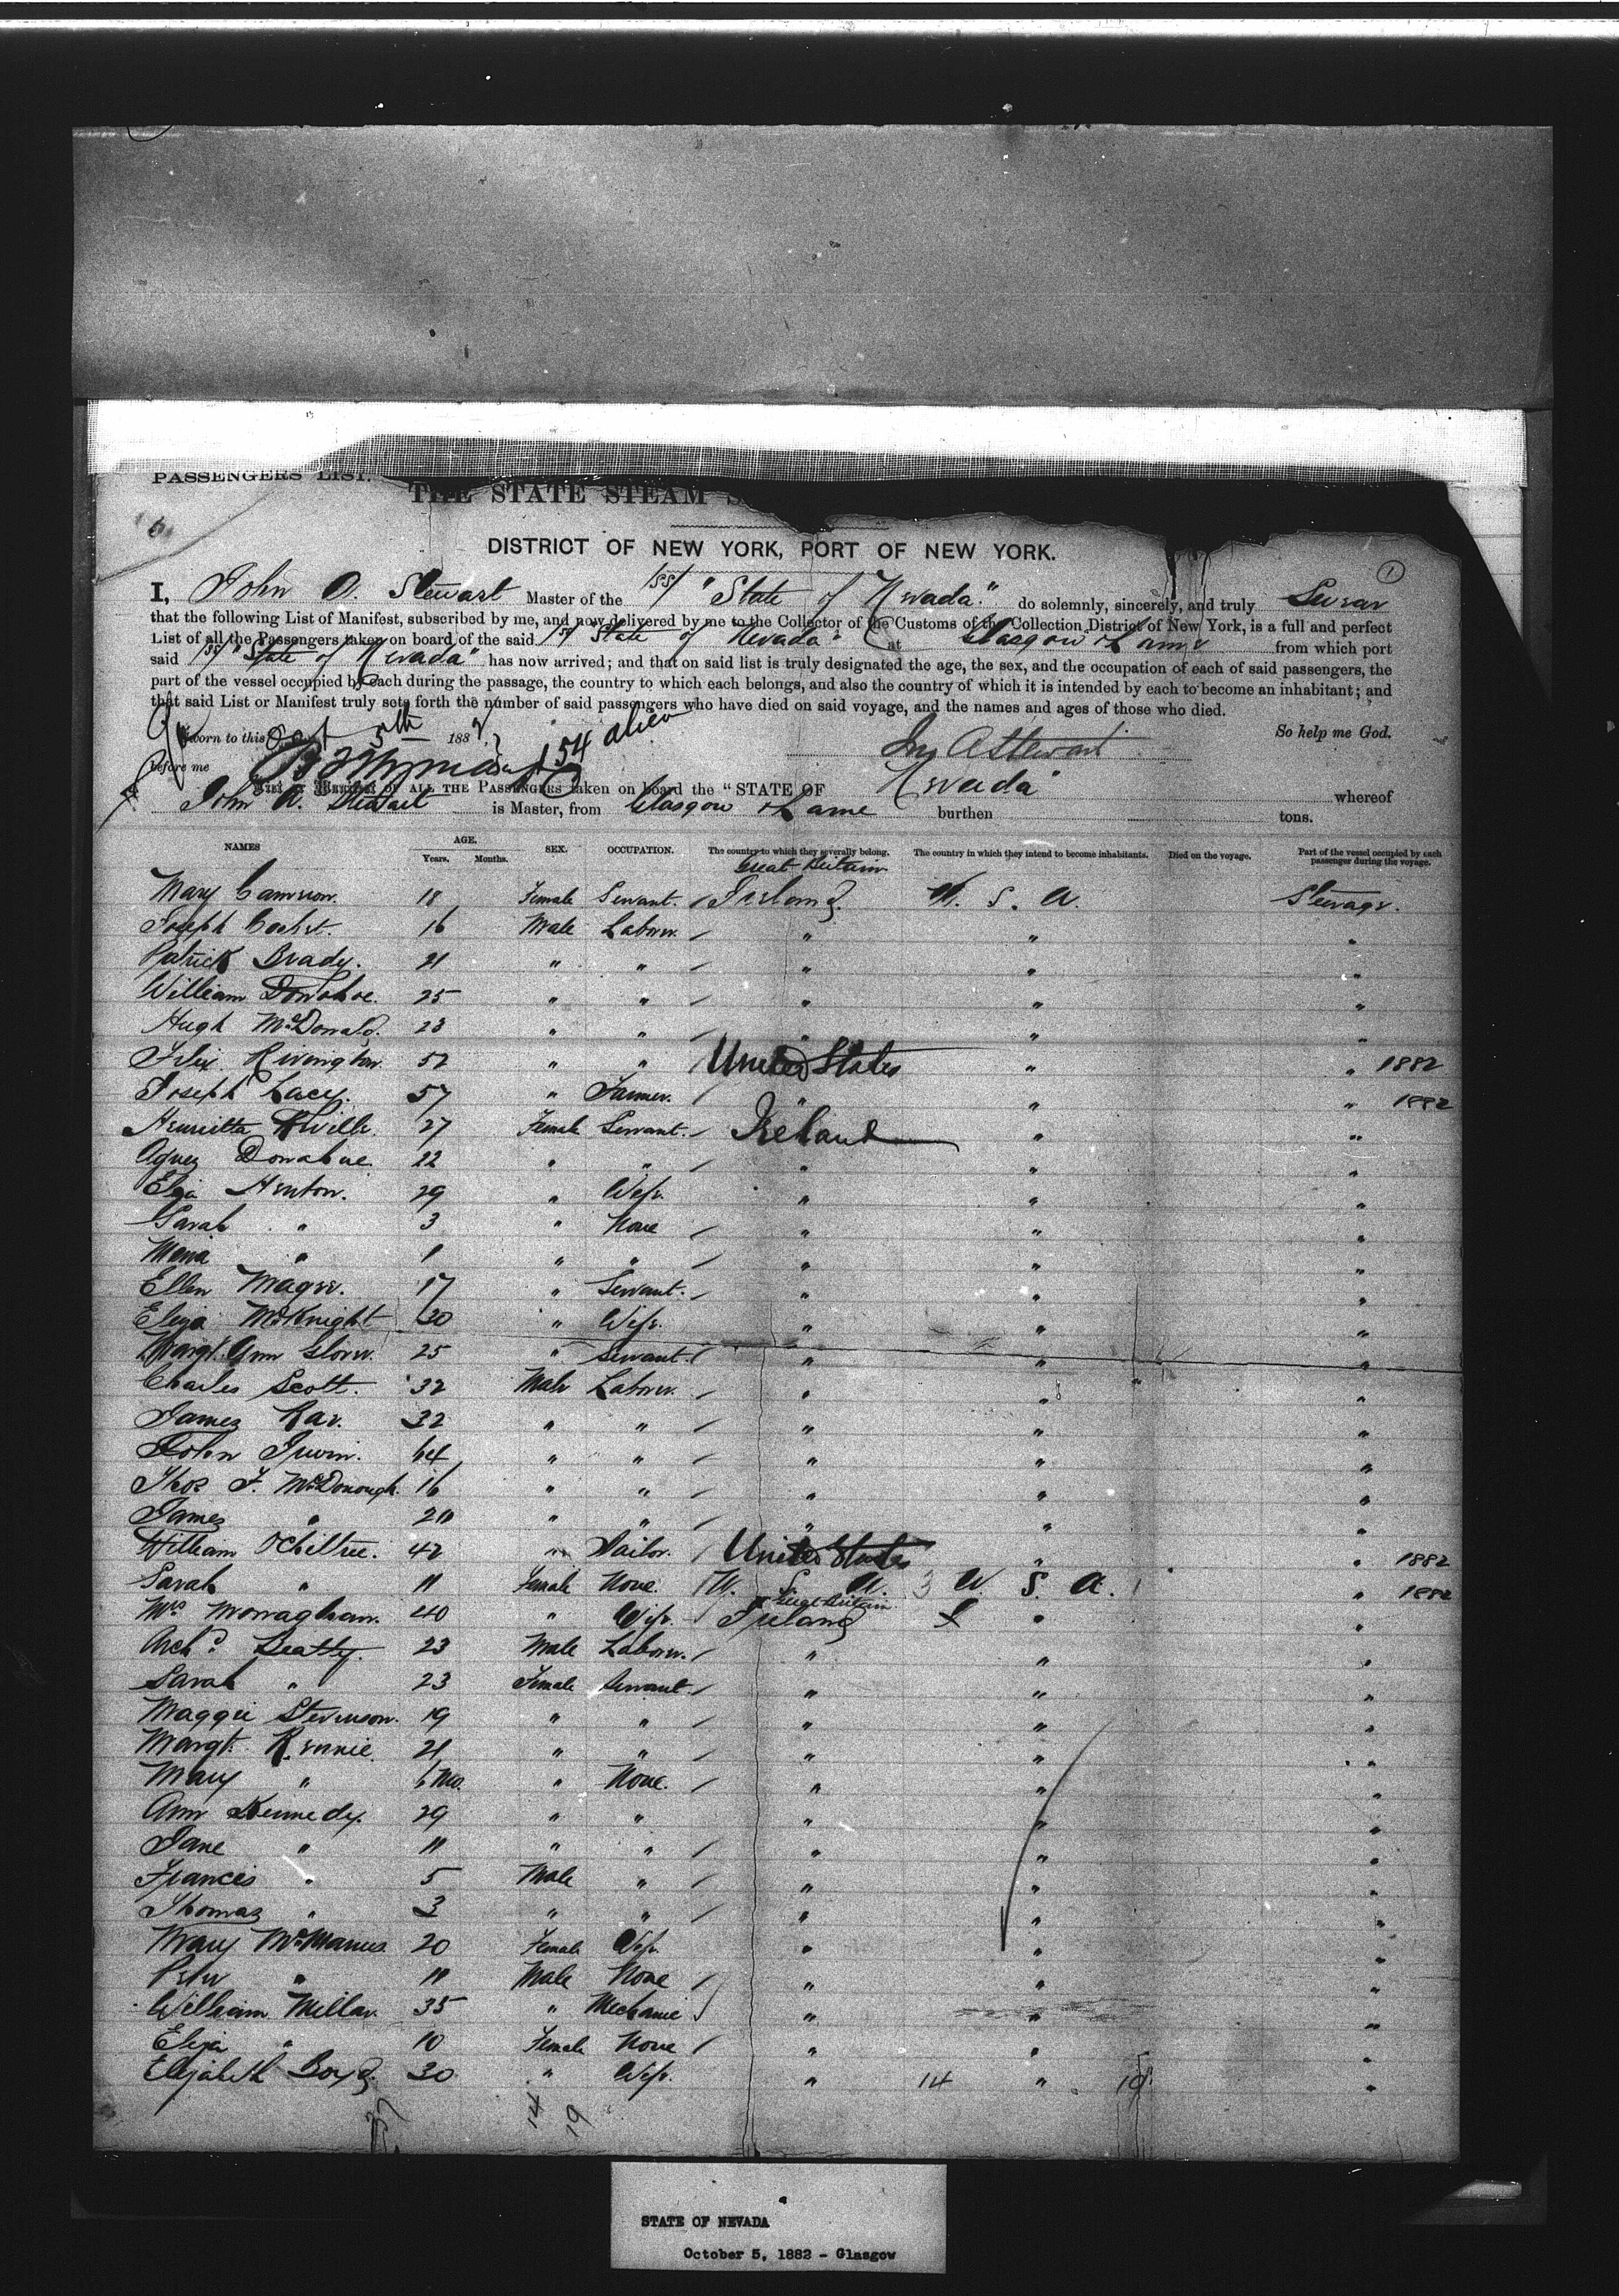 PASSENGERS LIST.
THE STATE STEAM
DISTRICT OF NEW YORK, PORT OF NEW YORK.
1
I, John A. Stewart Master of the SS "State of Nevada" do solemnly, sincerely, and truly Swear
that the following List of Manifest, subscribed by me, and now delivered by me to the Collector of the Customs of the Collection District of New York, is a full and perfect
List of all the Passengers taken on board of the said SS State of Nevada" at Glasgow & Larne from which port
said SS "State of Nevada" has now arrived; and that on said list is truly designated the age, the sex, and the occupation of each of said passengers, the
part of the vessel occupied by each during the passage, the country to which each belongs, and also the country of which it is intended by each to become an inhabitant; and
that said List or Manifest truly sets forth the number of said passengers who have died on said voyage, and the names and ages of those who died.
Sworn to this Oct 5th 1882 154 alien So help me God.
before me Jn A Stewart
List or Manifest OF ALL THE PASSENGERS taken on board the "STATE OF Nevada whereof
John A. Stewart is Master, from Glasgow & Larne burthen tons.
NAMES AGE. Years. Months. SEX. OCCUPATION. The country to which they severally belong. The country in which they intend to become inhabitants. Died on the voyage. Part of the vessel occupied by each passenger during the voyage.
Great Britain
Mary Cameron. 18 Female Servant. Ireland. U. S. A. Steerage.
Joseph 16 Male Laborer. " " "
Patrick Brady. 21 " " " " "
William Donohoe. 25 " " " " "
Hugh McDonald. 23 " " " " "
Felix Rivington 52 " " United States " " 1882
Joseph Lacey. 57 " Farmer. " " " 1882
Henrietta 27 Female Servant. Ireland " "
Agnes Donahue 22 " " " " "
Eliza Henton. 29 " Wife. " " "
Sarah " 3 " None " " "
Maria " 1 " " " " "
Ellen Magee. 17 " Servant. " " "
Eliza McKnight 30 " Wife. " " "
Margt. Ann Glover. 25 " Servant. " " "
Charles Scott. 32 Male Laborer. " " "
James Rae. 32 " " " " "
John Irwin. 64 " " " " "
Thos F. McDonough. 16 " " " " "
James " 20 " " " " "
William Ochiltree. 42 " Tailor. United States " " 1882
Sarah " 11 Female None. U. S. A. 3 U. S. A. " 1882
Great Britain
Mrs Monaghan. 40 " Wife. Ireland " "
Archd. Beatty. 23 Male Laborer. " " "
Sarah " 23 Female Servant. " " "
Maggie Stevenson. 19 " " " " "
Margt. Rennie. 21 " " " " "
Mary " 6 Mo. " None. " " "
Ann Kennedy. 29 " " " " "
Jane " 11 " " " " "
Francis " 5 Male " " " "
Thomas " 3 " " " " "
Mary McManus 20 Female Wife. " " "
Peter " 11 Male None " " "
William Millar. 35 " Mechanic " " "
Eliza " 10 Female None " " "
Elizabeth Boyd. 30 " Wife. " 14 " 19 "
37 14 19
STATE OF NEVADA
October 5, 1882 - Glasgow